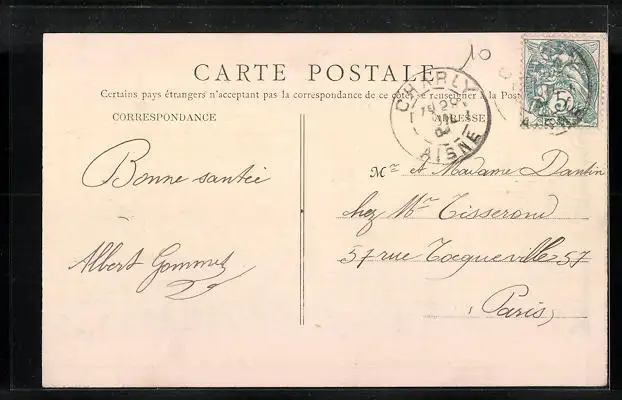 10
CARTE POSTALE
Certains pays étrangers n'acceptant pas la correspondance de ce côté, se renseigner à la Poste
CORRESPONDANCE
ADRESSE
CHARLY
28
AISNE
5
Bonne santée
Albert
Mr et Madame Dantin
chez Mr Tisserand
57 rue Tocqueville 57
Paris